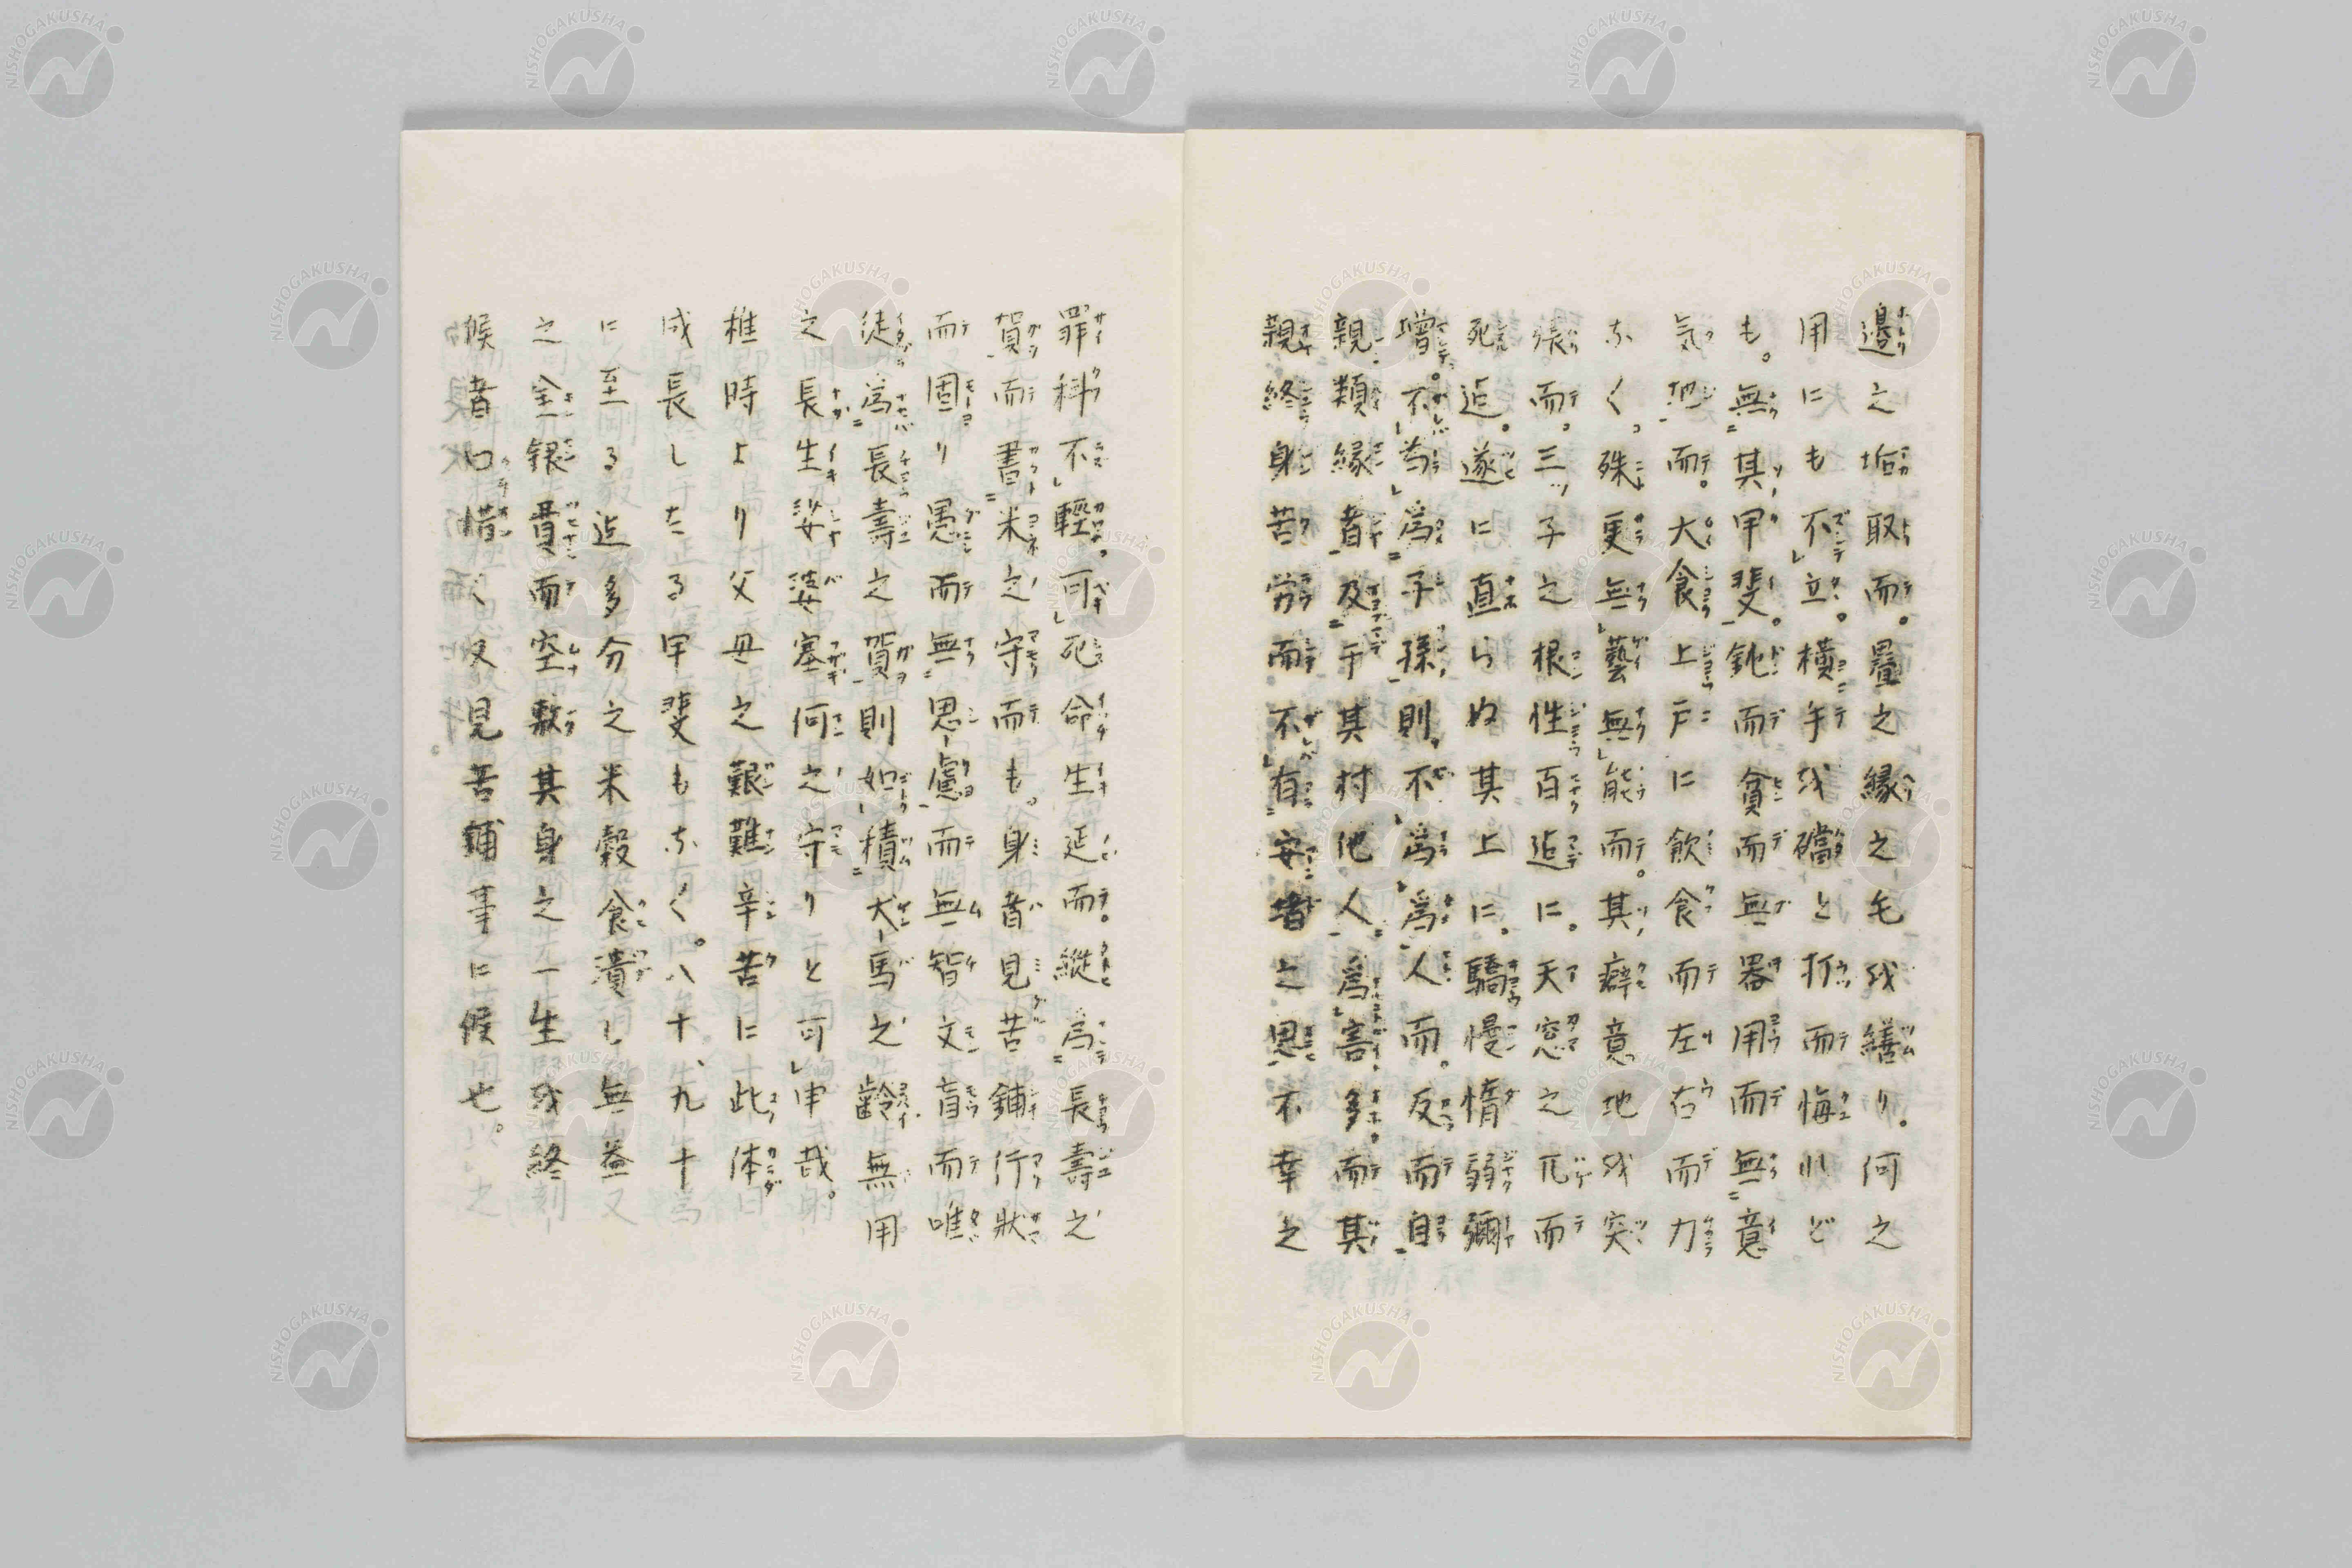 邊之垢取而。疊之縁之毛を繕り。何之
用にも不立。横手を礑と打而悔れど
も。無其甲斐。鈍而貧而無器用而無意
気地而。大食上戸に飲食而左右而力
なく、殊更無藝無能而。其癖意地を突
張而、三ツ子之根性百迄に。天窓之兀而
死迄。遂に直らぬ其上に。驕慢惰弱彌
増。不為為子孫則、不為為人而。反而自
親類縁者及乎其村他人。為害多。而其
親終身苦労而不有安堵之思不幸之
罪科不輕。可死命生延而。縦為長壽之
賀而書米之守而も。身者見苦鋪行状
而固り愚而無思慮而無智文盲而唯
徒為長壽之賀則如積犬馬之齢無用
之長生娑婆塞何之守りと可申哉。
椎時より父母之艱難辛苦に此体
成長したる甲斐もなく。八十、九十
に至る迄多分之米穀食潰し無益
之金銀費而空敷其身之一生を終
候者口惜く又見苦鋪事に候也。